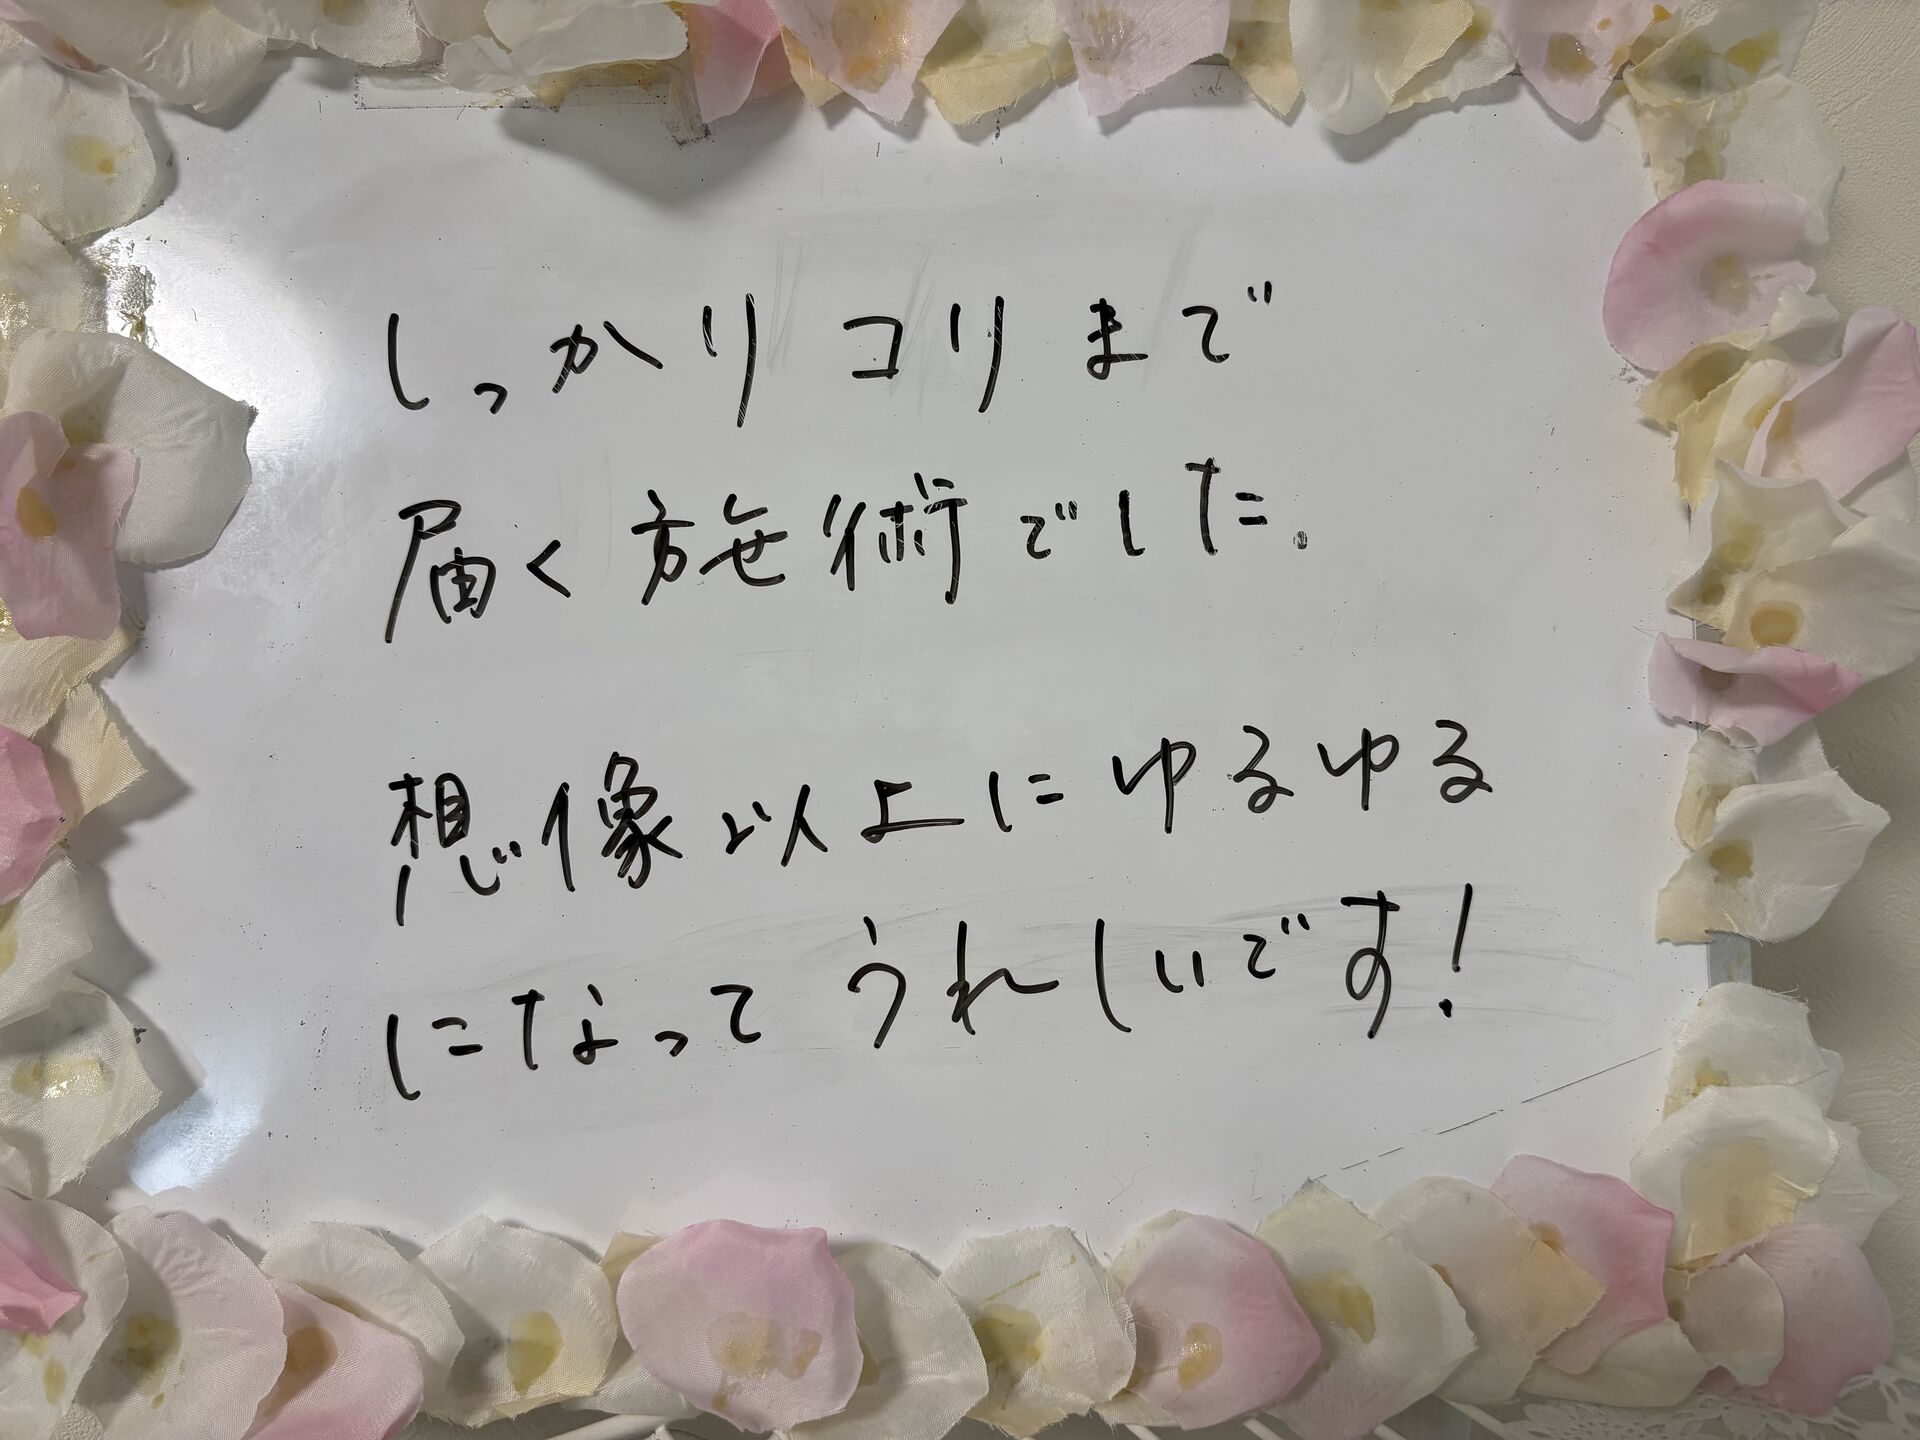 しっかりコリまで
届く施術でした。
想像以上にゆるゆる
になってうれしいです!